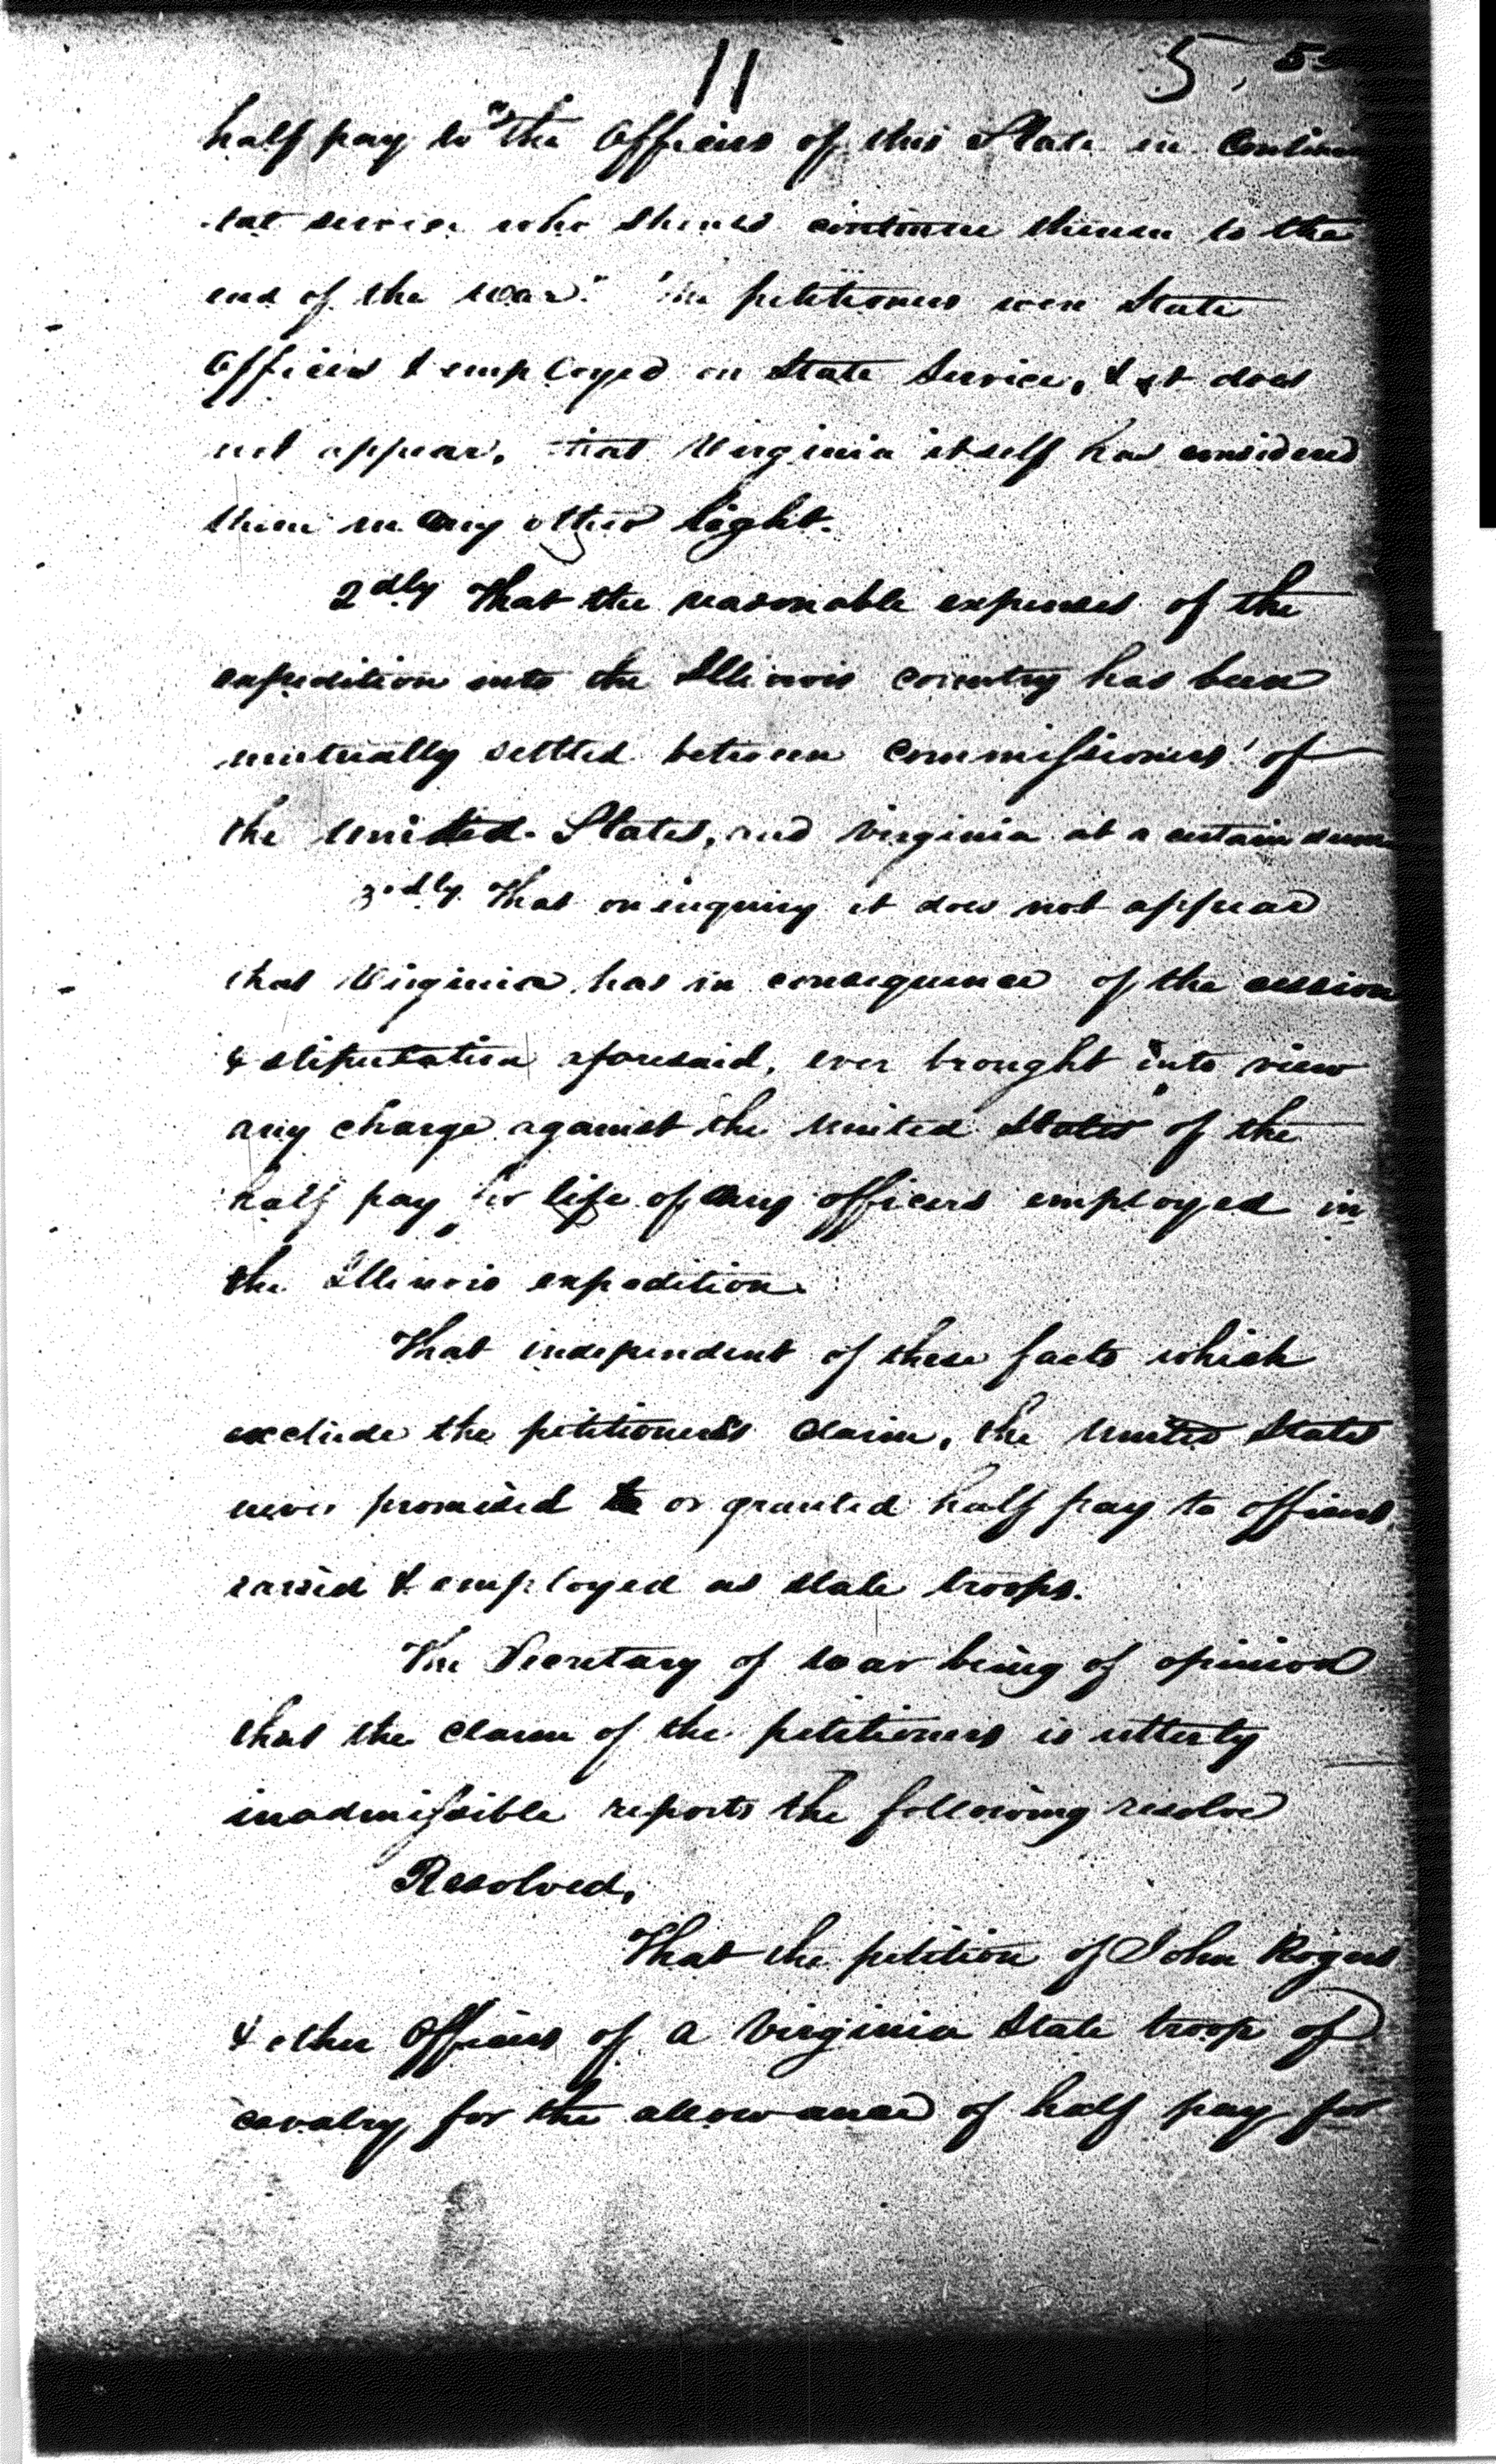 11 5
half pay to "the Officers of this State in Contin
-tal service who should continue therein to the
end of the war." The petitioners were State
Officers & employed in State Service, & it does
not appear, that Virginia itself has considered
them in any other light.
2dly That the reasonable expenses of the
expedition into the Illinois country has been
mutually settled between Commissioners of
the United States, and Virginia at a certain sum
3dly That on inquiry it does not appear
that Virginia has in consequence of the cession
& stipulation aforesaid, ever brought into view
any charge against the United States of the
half pay for life of any officers employed in
the Illinois expedition.
That independent of these facts which
exclude the petitioners claim, the United States
never promised or granted half pay to officers,
raised & employed as state troops.
The Secretary of War being of opinion
that the claim of the petitioners is utterly
inadmissible reports the following resolve
Resolved,
That the petition of John Rogers
& other Officers of a Virginia State troop of
cavalry for the allowance of half pay for